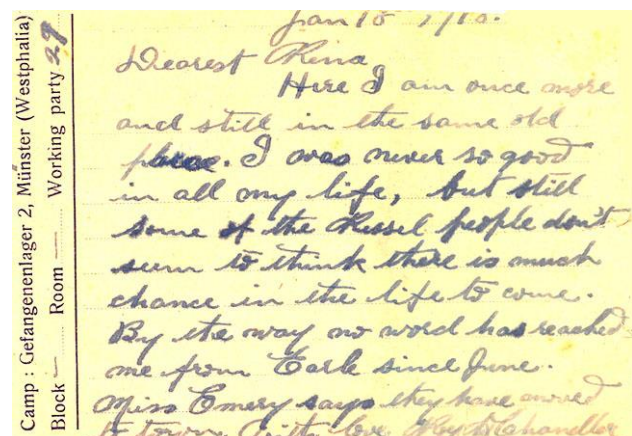 Camp : Gefangenenlager 2, Münster (Westphalia)
Block — Room — Working party 29
Jan 18
Dearest Rena
Here I am once more
and still in the same old
place. I was never so good
in all my life, but still
some of the people don't
seem to think there is much
chance in the life to come.
By the way no word has reached
me from Earle since June.
Miss Emery says they have moved
to town. With love